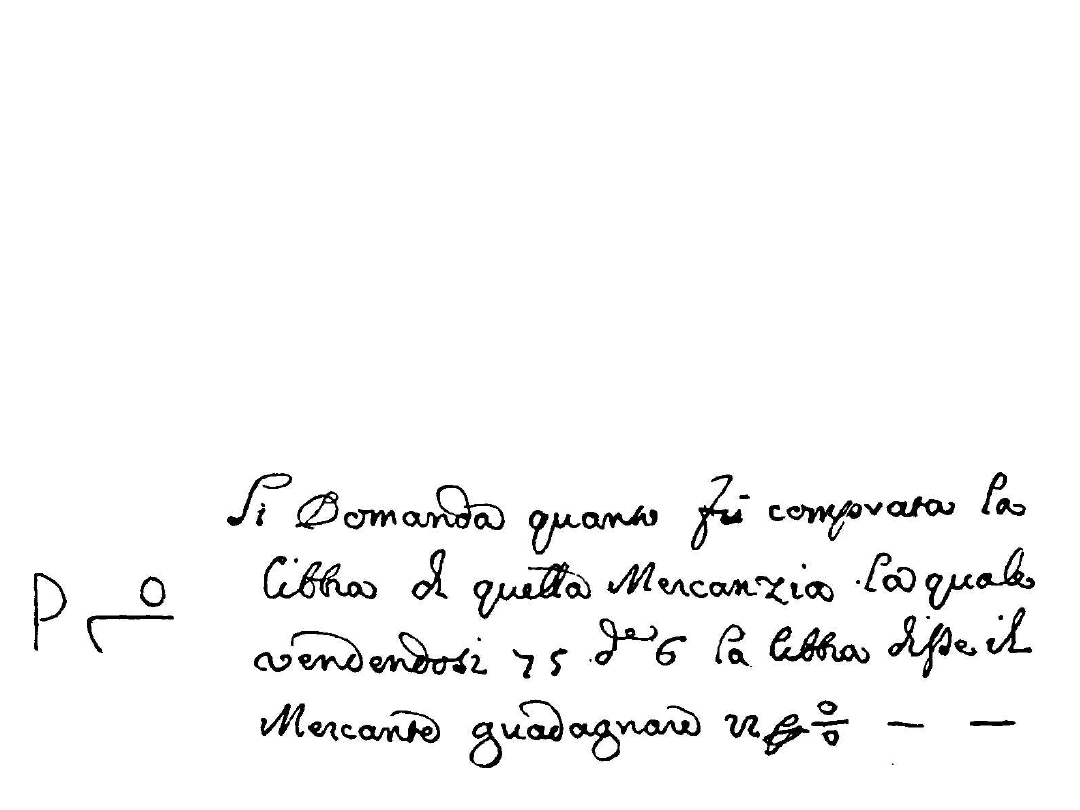 Si Domanda quanto fù comprata la
libbra di quella Mercanzia la quale
vendendosi 75 de 6 la libbra disse il
Mercante guadagnare 22 p % — —